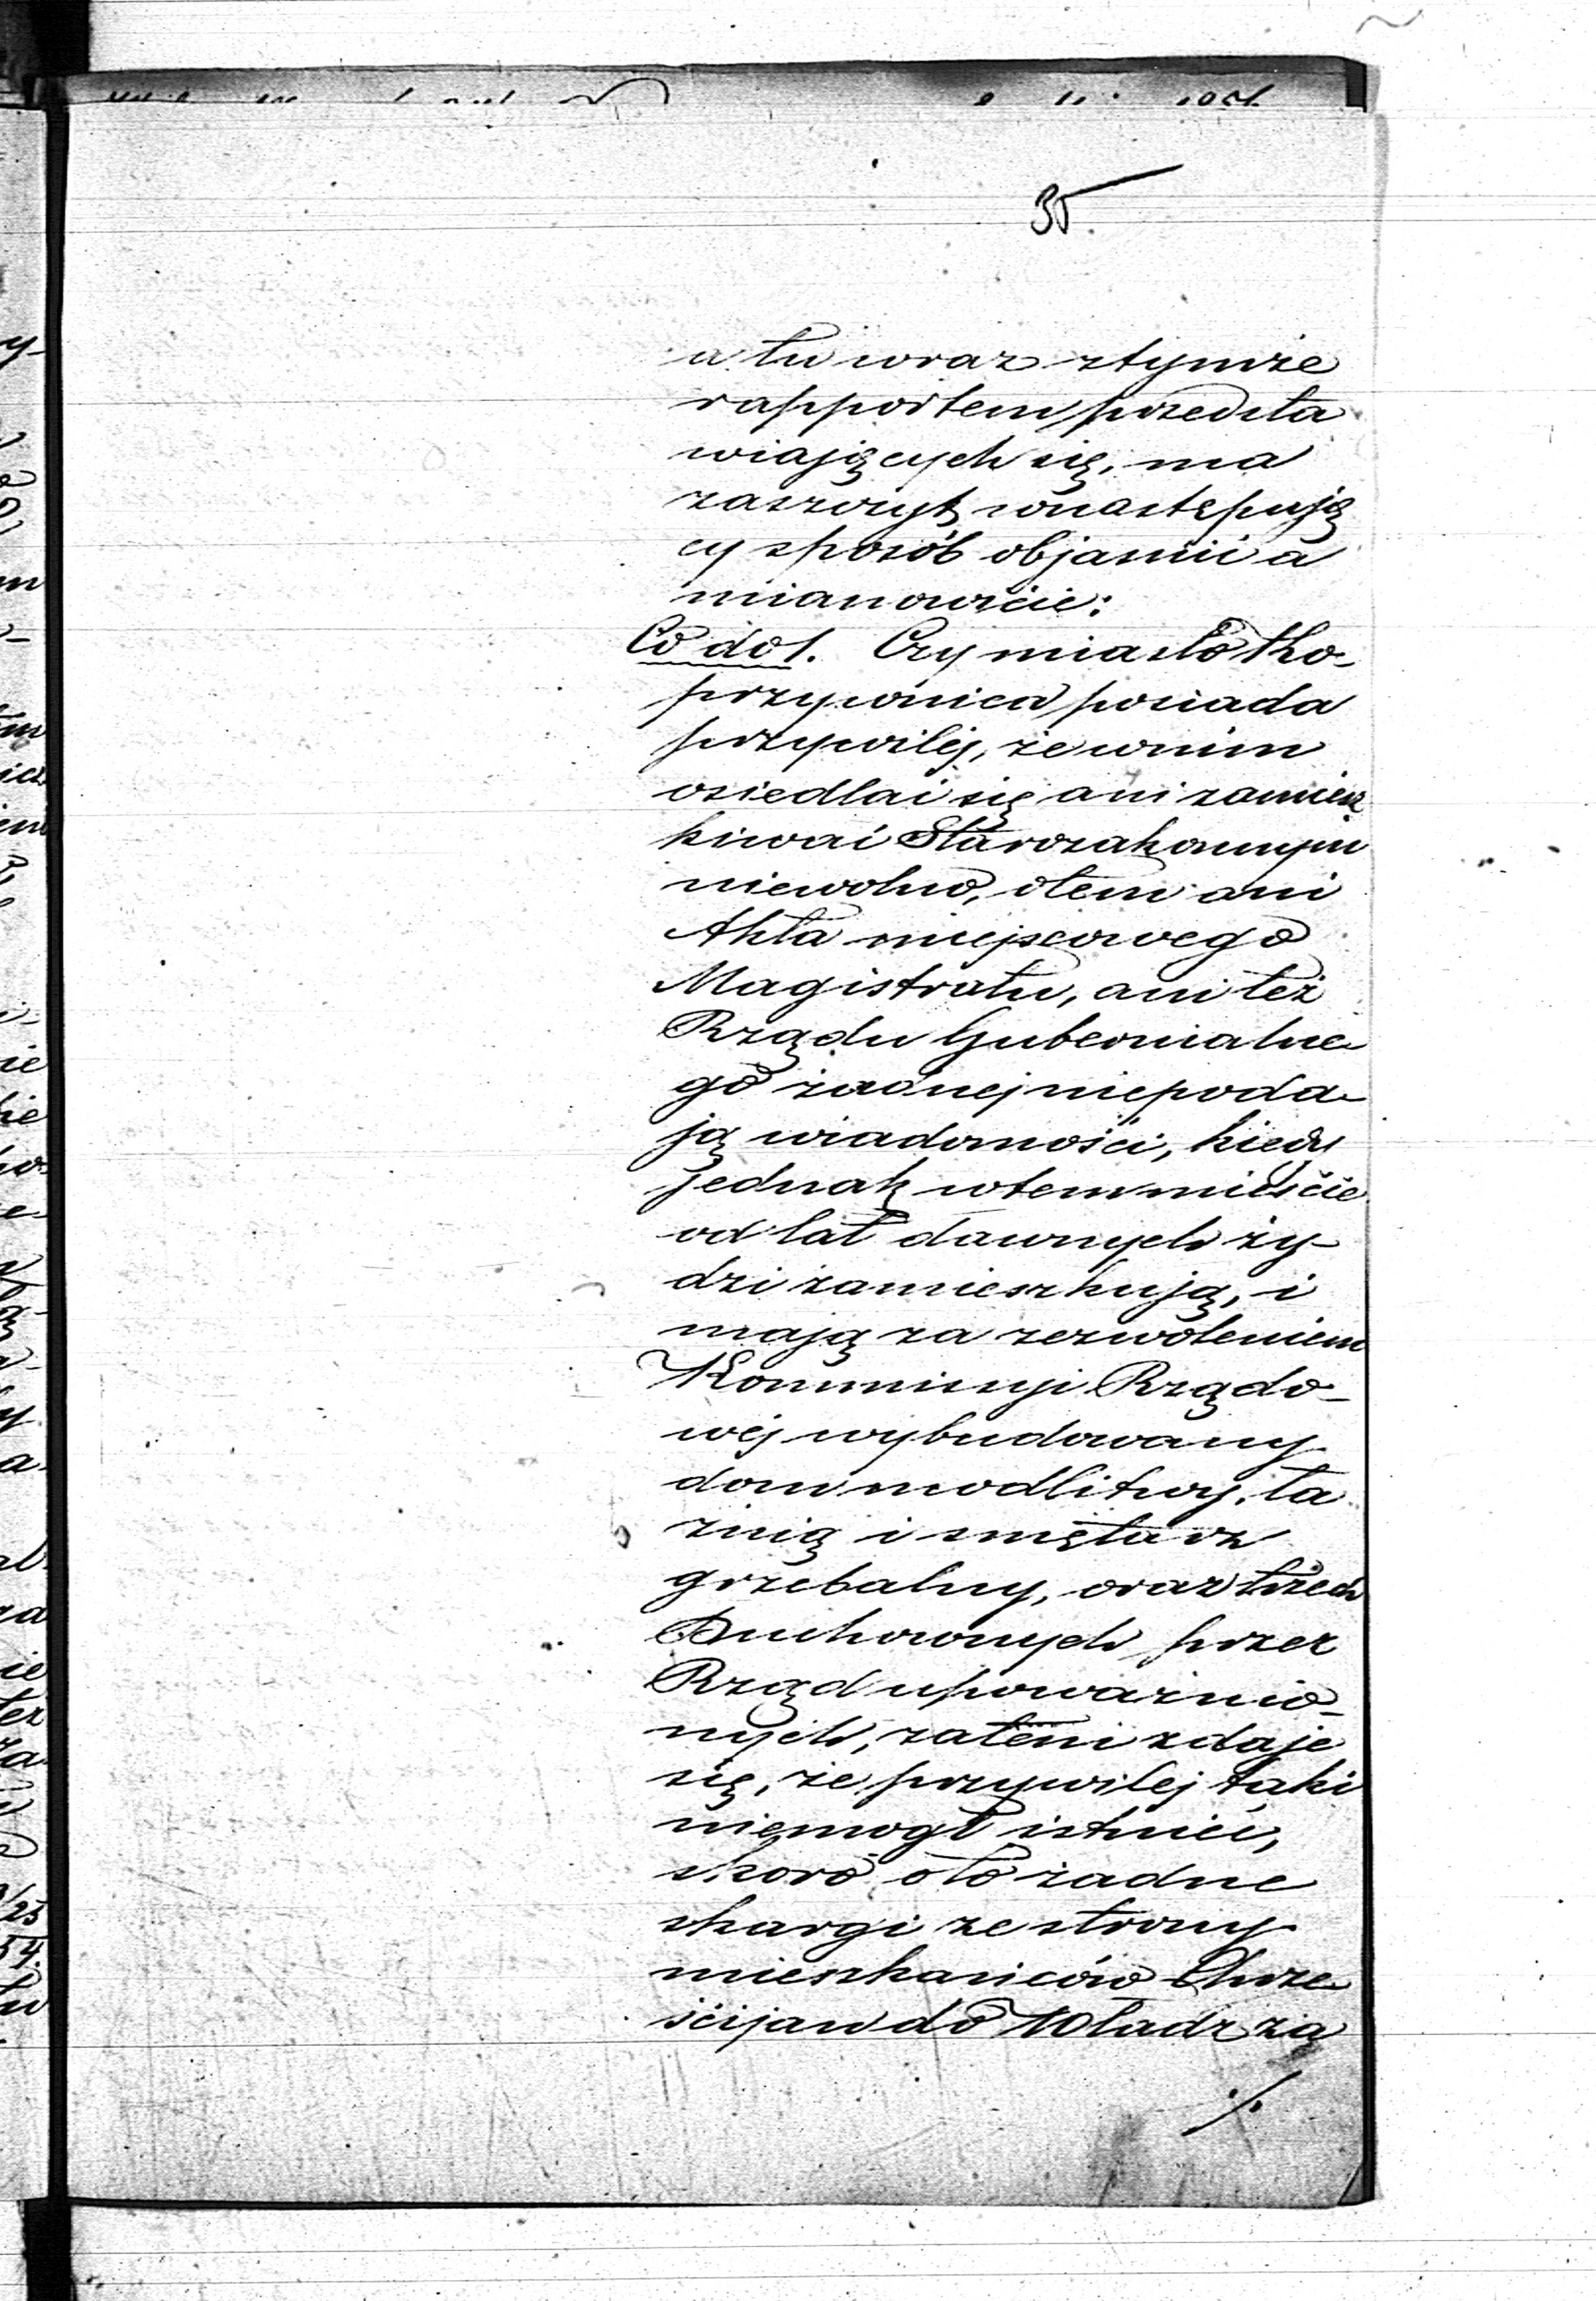 35.
a tu wraz ztymże
rapportem przedsta
wiających się, ma
zaszczyt wnastępują
cy sposób objasnić a
mianowicie:
Co do 1. Czy miasto Kho-
przywnica posiada
przywilej, że wnim
osiedlać się ani zamiesz
kiwać Starozakonnym
niewolno, otem ani
Akta miejscowego
Magistratu, ani też
Rządu Gubernialne-
go żadnej niepoda-
ją wiadomości, kiedy
jednak wtem mieście
od lat dawnych ży-
dzi zamieszkują, i
mają za zezwoleniem
Kommissyi Rządo-
wéj wybudowany
dom modlitwy, ła
źnią i smętarz
grzebalny, oraz trzech
Duchownych przez
Rząd upoważnio-
nych, zatém zdaje
się, że przywilej taki
niemógł istnieć,
skoro oto żadne
skargi ze strony
mieszkańców Chrze-
ścijan do Władz za
./.